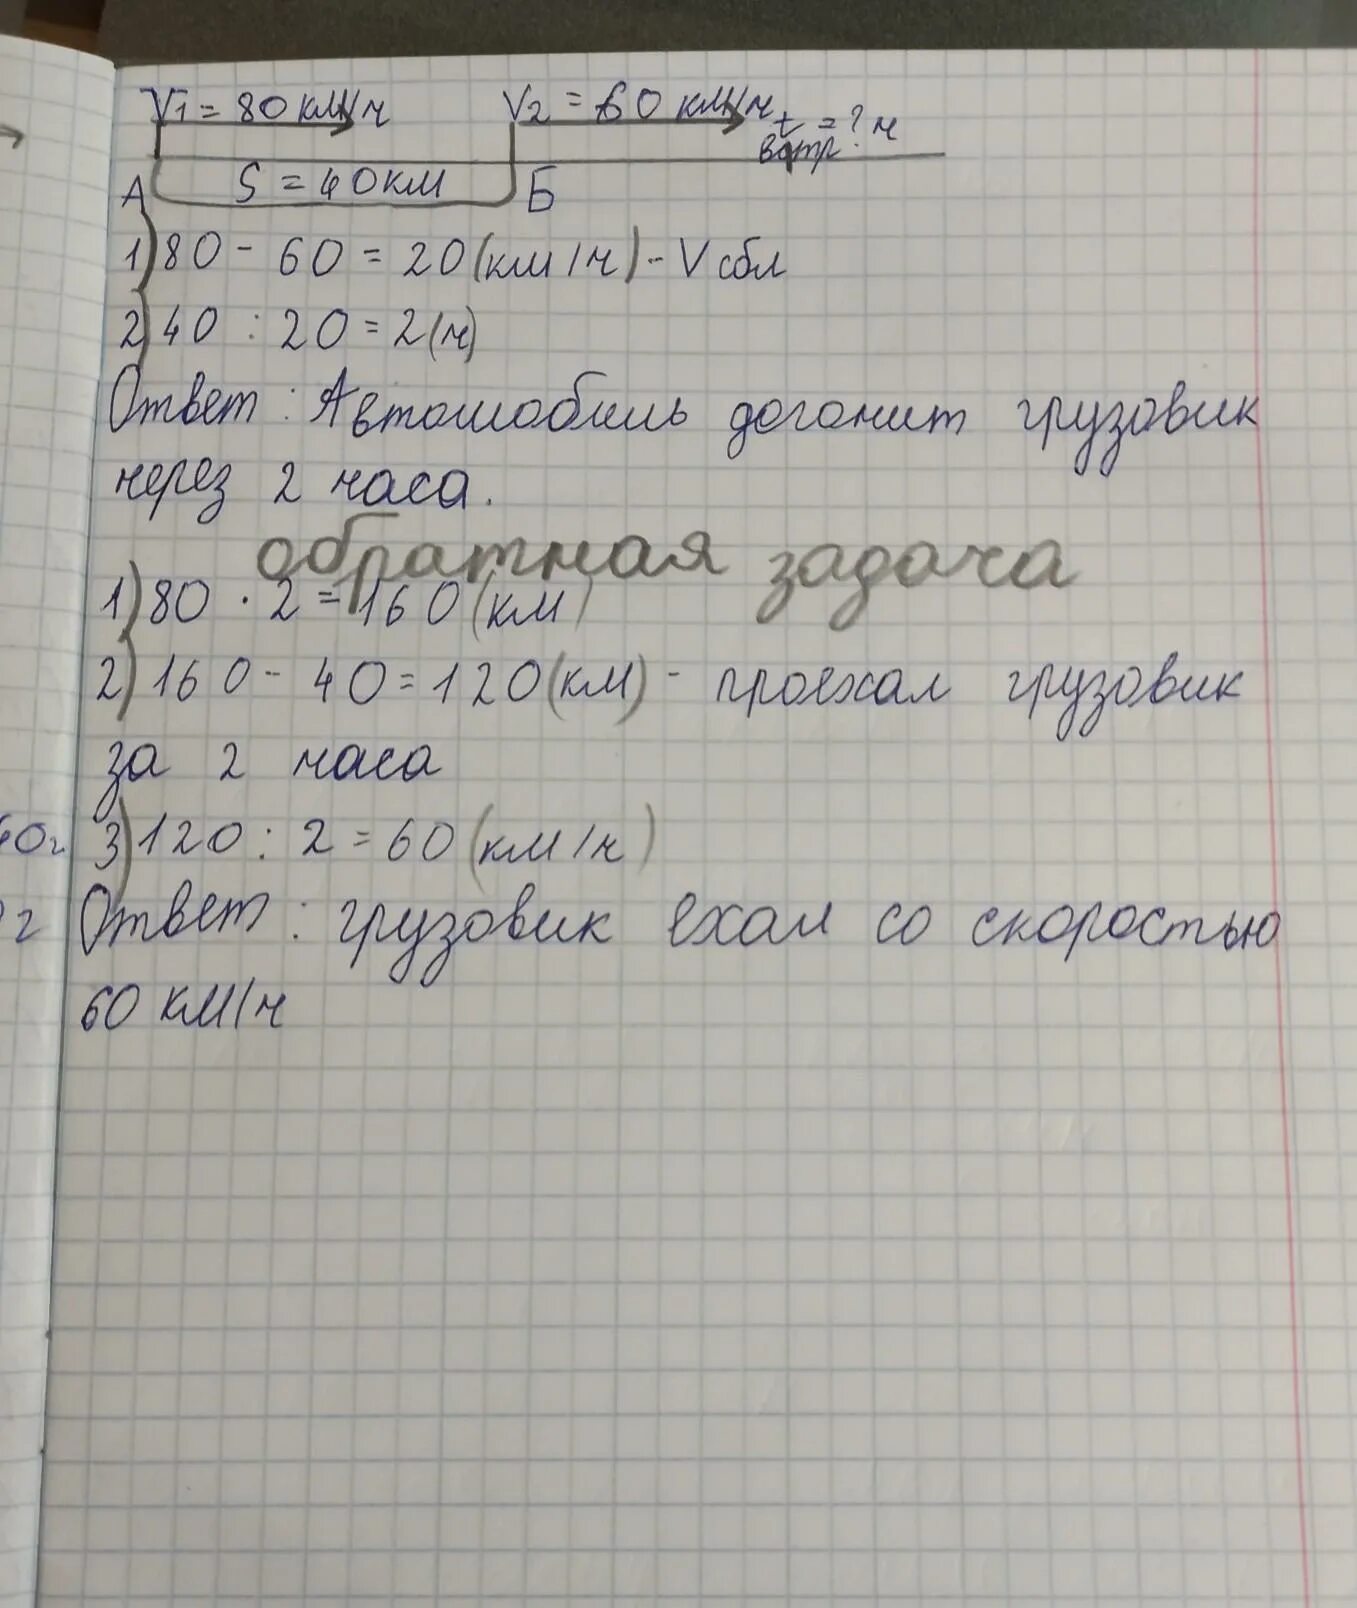 V1 = 80 км/ч V2 = 60 км/ч t встр = ? ч
А S = 40 км Б
1) 80 - 60 = 20 (км/ч) - V сбл
2) 40 : 20 = 2 (ч)
Ответ: Автомобиль догонит грузовик
через 2 часа.
обратная задача
1) 80 · 2 = 160 (км)
2) 160 - 40 = 120 (км) - проехал грузовик
за 2 часа
3) 120 : 2 = 60 (км/ч)
Ответ: грузовик ехал со скоростью
60 км/ч